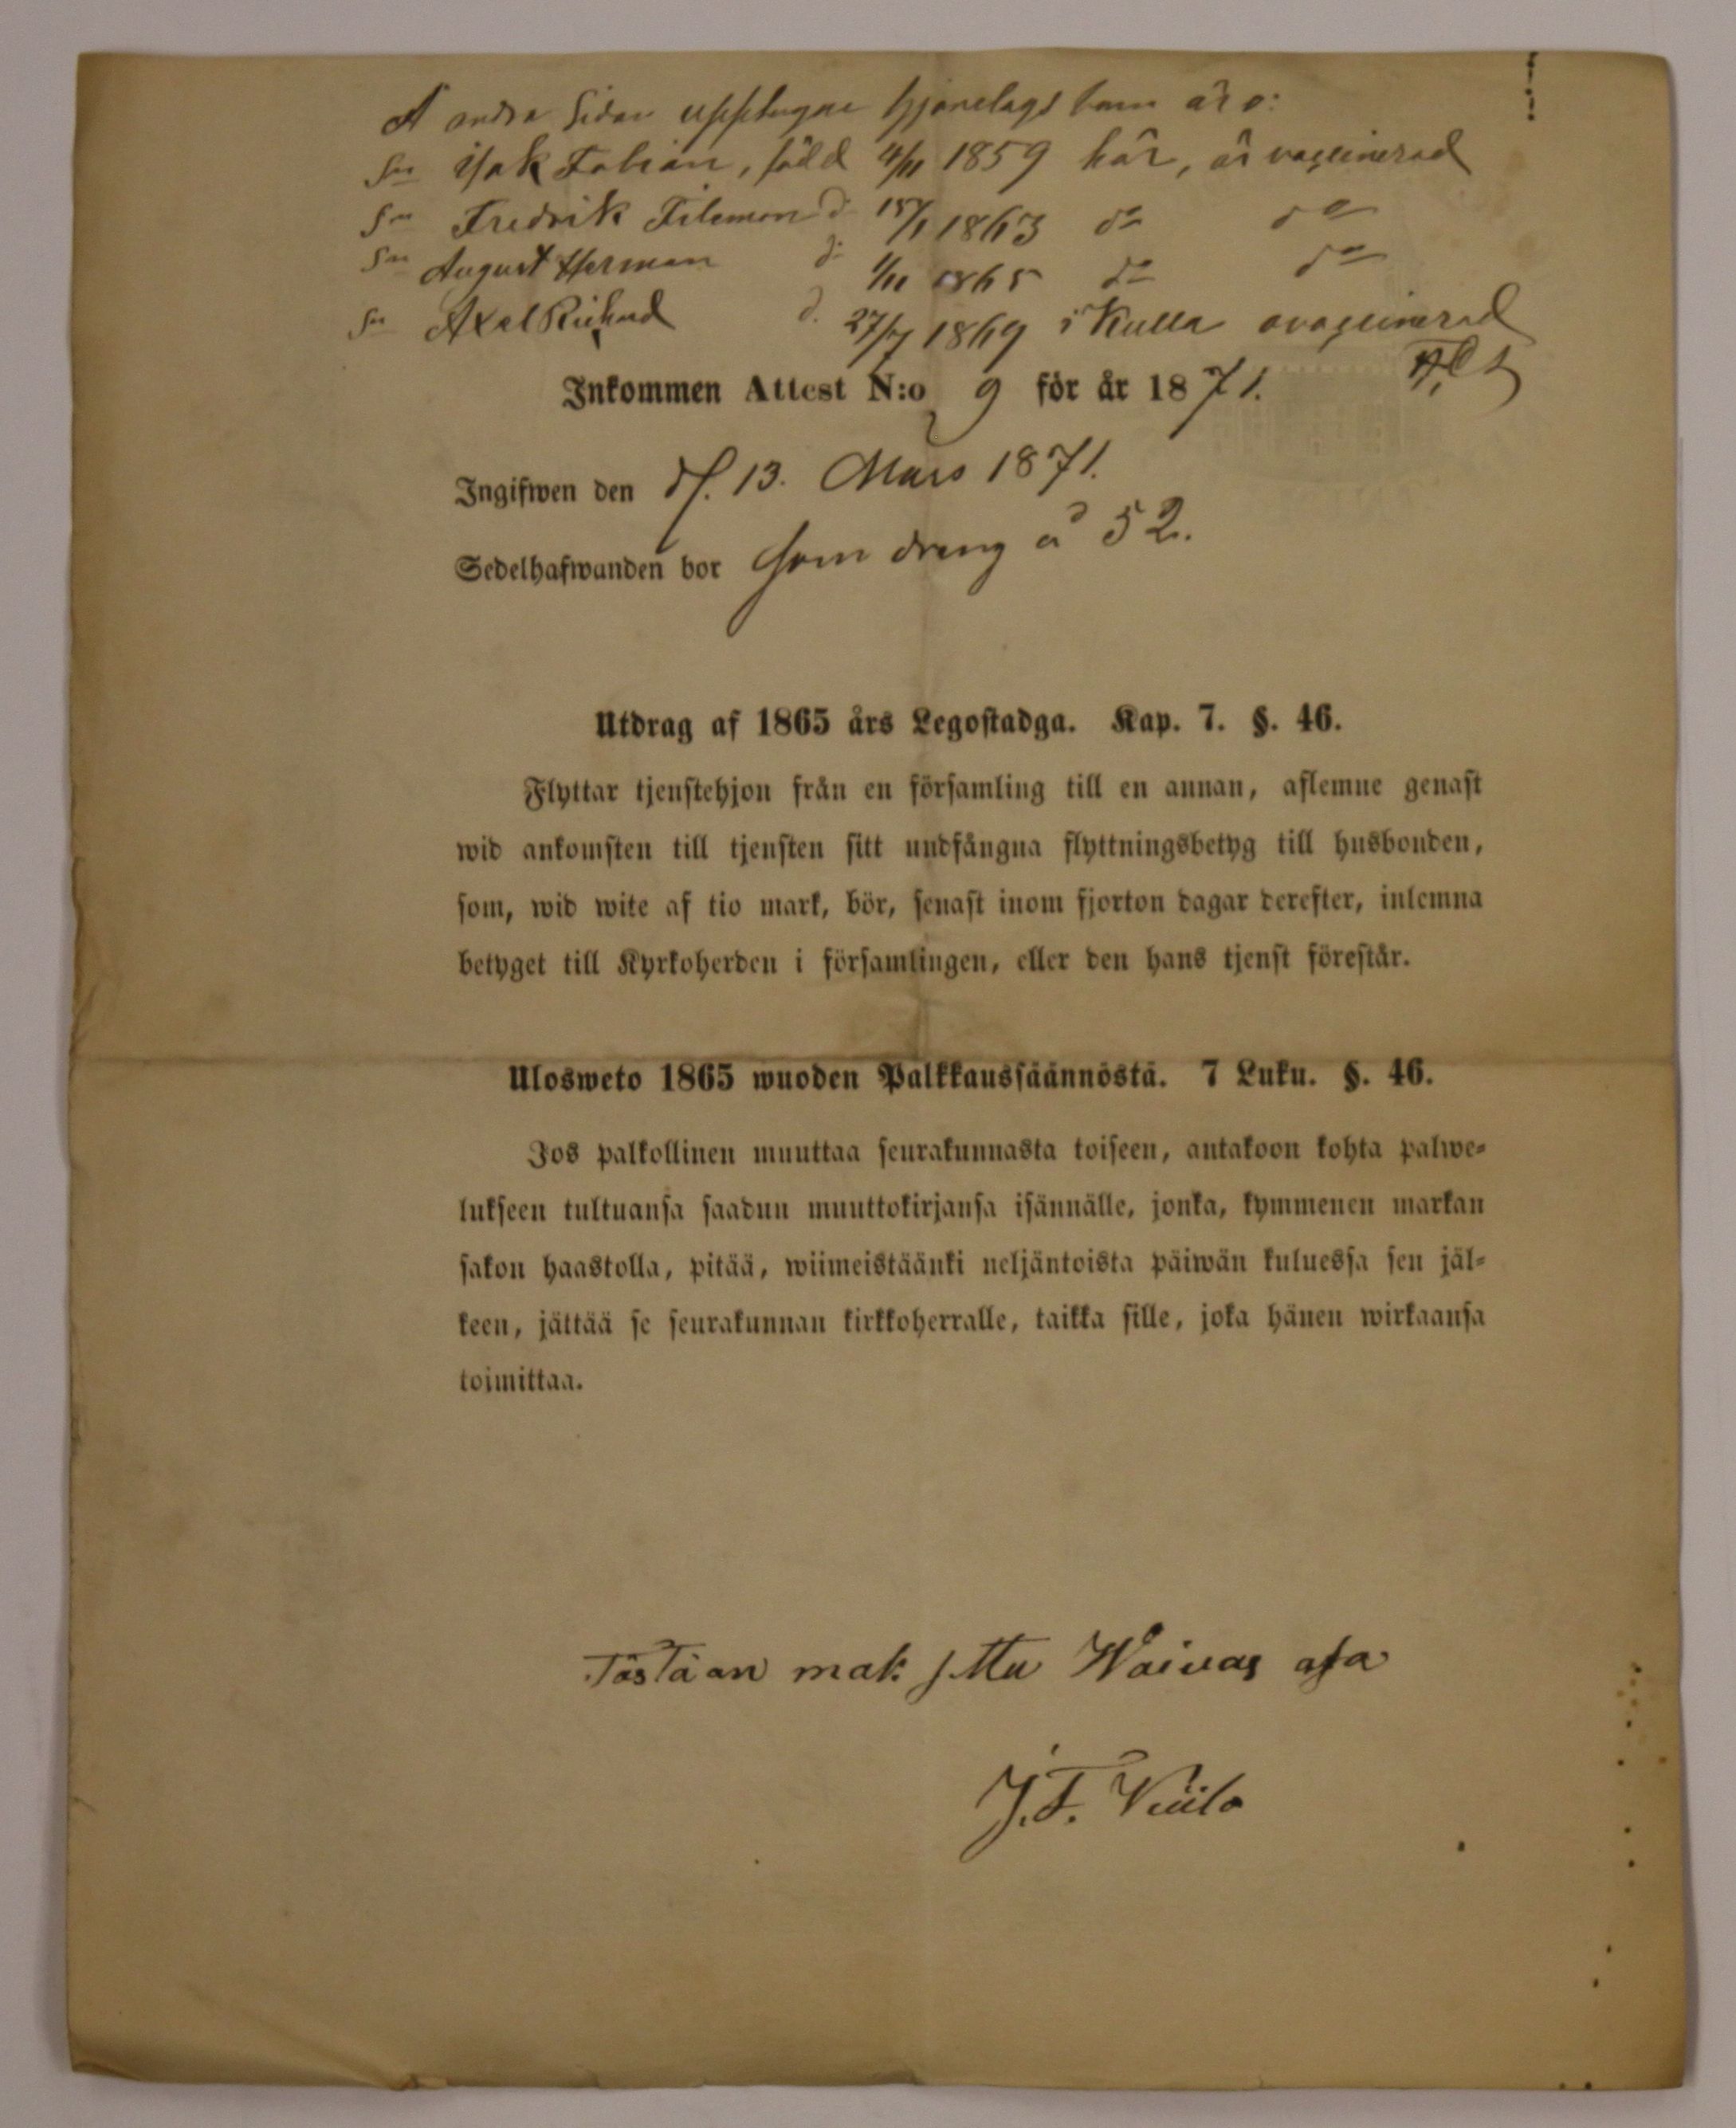 Å andra sidan upptagne hjonelags barn äro:
Sn Isak Fabian, född 4/11 1859 här, är vaccinerad
Sn Fredrik Filemon d: 15/1 1863 do do
Sn August Herman d: 1/11 1865 do do
Sn Axel Richard d. 27/7 1869 i Kulla ovaccinerad
Inkommen Attest N:o 9 för år 1871.
Ingifwen den d. 13. Mars 1871.
Sedelhafwanden bor som dreng å 52.
Utdrag af 1865 års Legostadga. Kap. 7. §. 46.
Flyttar tjenstehjon från en församling till en annan, aflemne genast
wid ankomsten till tjensten sitt undfångna flyttningsbetyg till husbonden,
som, wid wite af tio mark, bör, senast inom fjorton dagar derefter, inlemna
betyget till Kyrkoherden i församlingen, eller den hans tjenst förestår.
Ulosweto 1865 wuoden Palkkaussäännöstä. 7 Luku. §. 46.
Jos palkollinen muuttaa seurakunnasta toiseen, antakoon kohta palwe-
lukseen tultuansa saadun muuttokirjansa isännälle, jonka, kymmenen markan
sakon haastolla, pitää, wiimeistäänki neljäntoista päiwän kuluessa sen jäl-
keen, jättää se seurakunnan kirkkoherralle, taikka sille, joka hänen wirkaansa
toimittaa.
Tästä an maksettu Waivas apa
J.F.